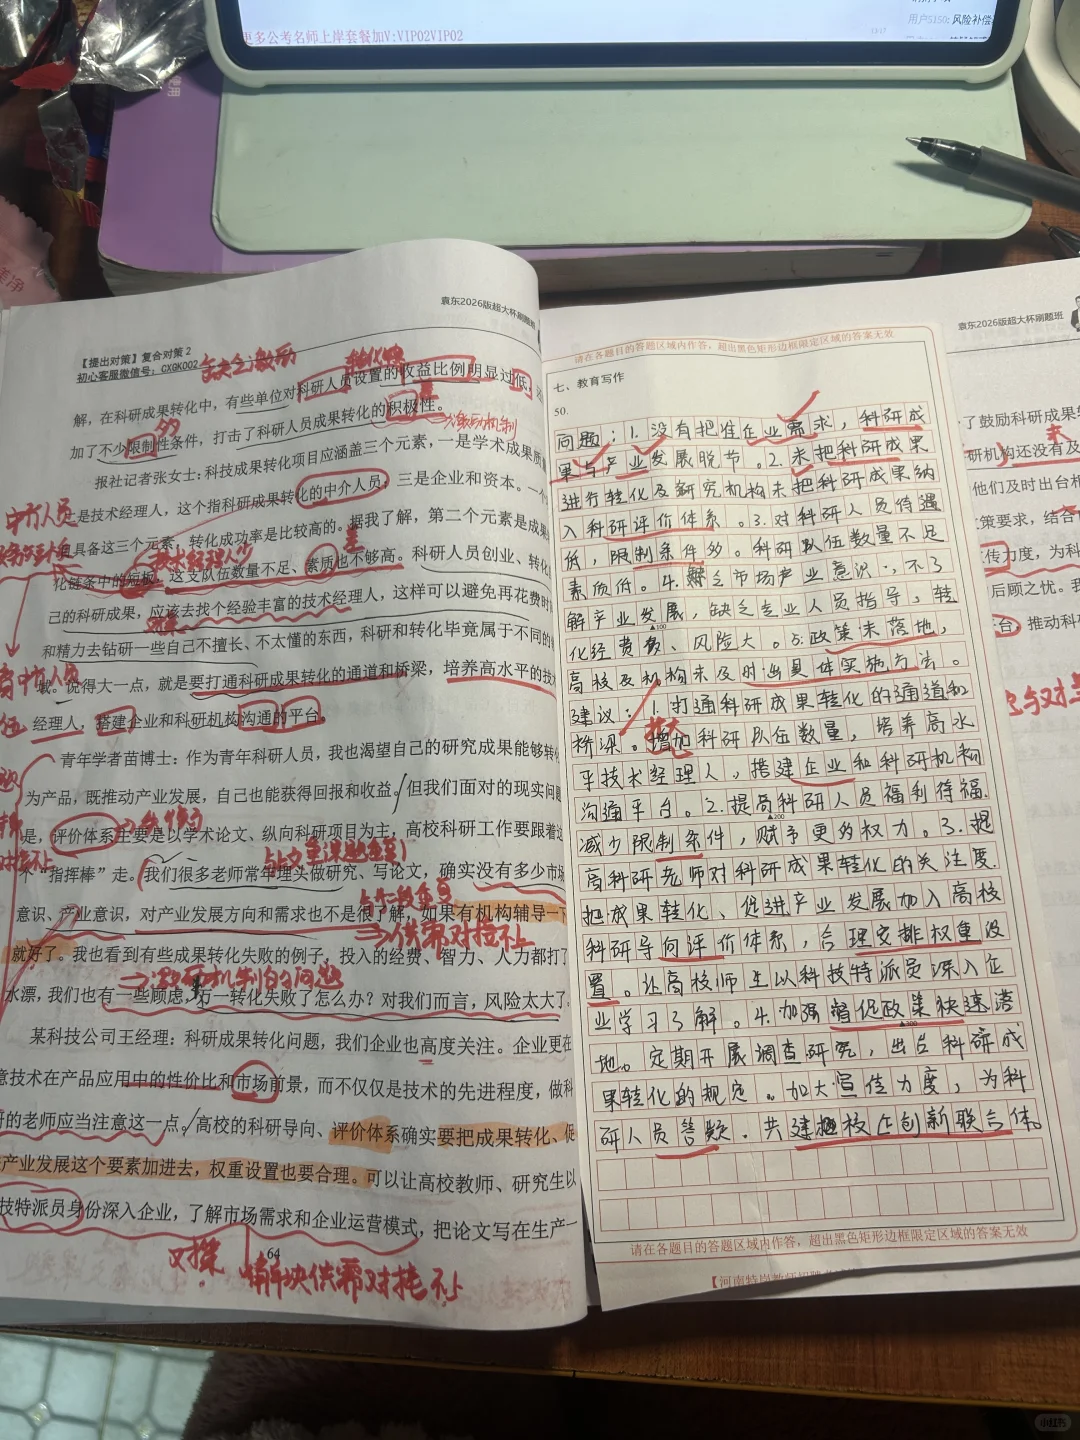 更多公考名师上岸套餐加V:VIP02VIP02
用户5150: 风险补偿
袁东2026版超大杯刷题班
【提出对策】复合对策2
初心客服微信号：CXGK002
缺乏激励
解，在科研成果转化中，有些单位对科研人员设置的收益比例明显过低，
加了不少限制性条件，打击了科研人员成果转化的积极性。
报社记者张女士：科技成果转化项目应涵盖三个元素，一是学术成果质
二是技术经理人，这个指科研成果转化的中介人员，三是企业和资本。一个
具备这三个元素，转化成功率是比较高的。据我了解，第二个元素是成果
技术经理人少
化链条中的短板，这支队伍数量不足、素质也不够高。科研人员创业、转化
己的科研成果，应该去找个经验丰富的技术经理人，这样可以避免再花费时
和精力去钻研一些自己不擅长、不太懂的东西，科研和转化毕竟属于不同的
域。说得大一点，就是要打通科研成果转化的通道和桥梁，培养高水平的技
经理人，搭建企业和科研机构沟通的平台。
青年学者苗博士：作为青年科研人员，我也渴望自己的研究成果能够转化
为产品，既推动产业发展，自己也能获得回报和收益。但我们面对的现实问题
是，评价体系主要是以学术论文、纵向科研项目为主，高校科研工作要跟着这
“指挥棒”走。我们很多老师常年埋头做研究、写论文，确实没有多少市场
意识、产业意识，对产业发展方向和需求也不是很了解，如果有机构辅导一下
⇒供需对接不上
就好了。我也看到有些成果转化失败的例子，投入的经费、智力、人力都打了
水漂，我们也有一些顾虑，万一转化失败了怎么办？对我们而言，风险太大了。
某科技公司王经理：科研成果转化问题，我们企业也高度关注。企业更在
意技术在产品应用中的性价比和市场前景，而不仅仅是技术的先进程度，做科
研的老师应当注意这一点。高校的科研导向、评价体系确实要把成果转化、促
产业发展这个要素加进去，权重设置也要合理。可以让高校教师、研究生以
技特派员身份深入企业，了解市场需求和企业运营模式，把论文写在生产一
64
对策
解决供需对接不上
请在各题目的答题区域内作答，超出黑色矩形边框限定区域的答案无效
七、教育写作
50.
问题：1.没有把准企业需求，科研成
果与产业发展脱节。2.未把科研成果
进行转化及研究机构未把科研成果纳
入科研评价体系。3.对科研人员待遇
低，限制条件多。科研队伍数量不足
素质低。4.缺乏市场产业意识，不了
解产业发展，缺乏专业人员指导，转
▲100
化经费多、风险大。5.政策未落地，
高校及机构未及时出具体实施办法。
建议：1.打通科研成果转化的通道和
桥梁。增加科研队伍数量，培养高水
平技术经理人，搭建企业和科研机构
沟通平台。2.提高科研人员福利待福.
▲200
减少限制条件，赋予更多权力。3.提
高科研老师对科研成果转化的关注度.
把成果转化、促进产业发展加入高校
科研导向评价体系，合理安排权重设
置。让高校师生以科技特派员深入企
业学习了解。4.加强督促政策快速落
▲300
地。定期开展调查研究，出台科研成
果转化的规定。加大宣传力度，为科
研人员答疑.共建校企创新联合体。
请在各题目的答题区域内作答，超出黑色矩形边框限定区域的答案无效
袁东2026版超大杯刷题班
了鼓励科研成果转
研机构还没有及
他们及时出台相
策要求，结合
传力度，为科
后顾之忧。我
台，推动科研
小红书